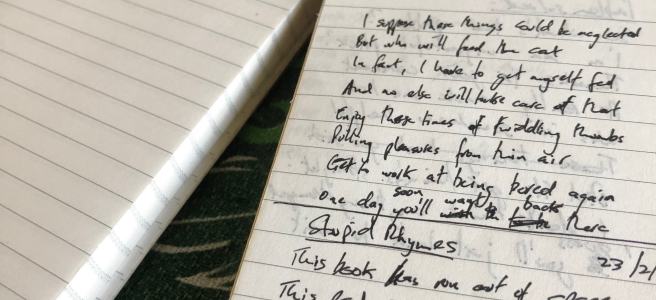 I suppose these things could be neglected
But who will feed the cat
In fact, I have to get myself fed
And no else will take care of that
Enjoy these times of twiddling thumbs
Pulling pleasures from thin air
Get to work at being bored again
One day you'll soon want back there
Stupid Rhymes
23/2
This book has run out of
This